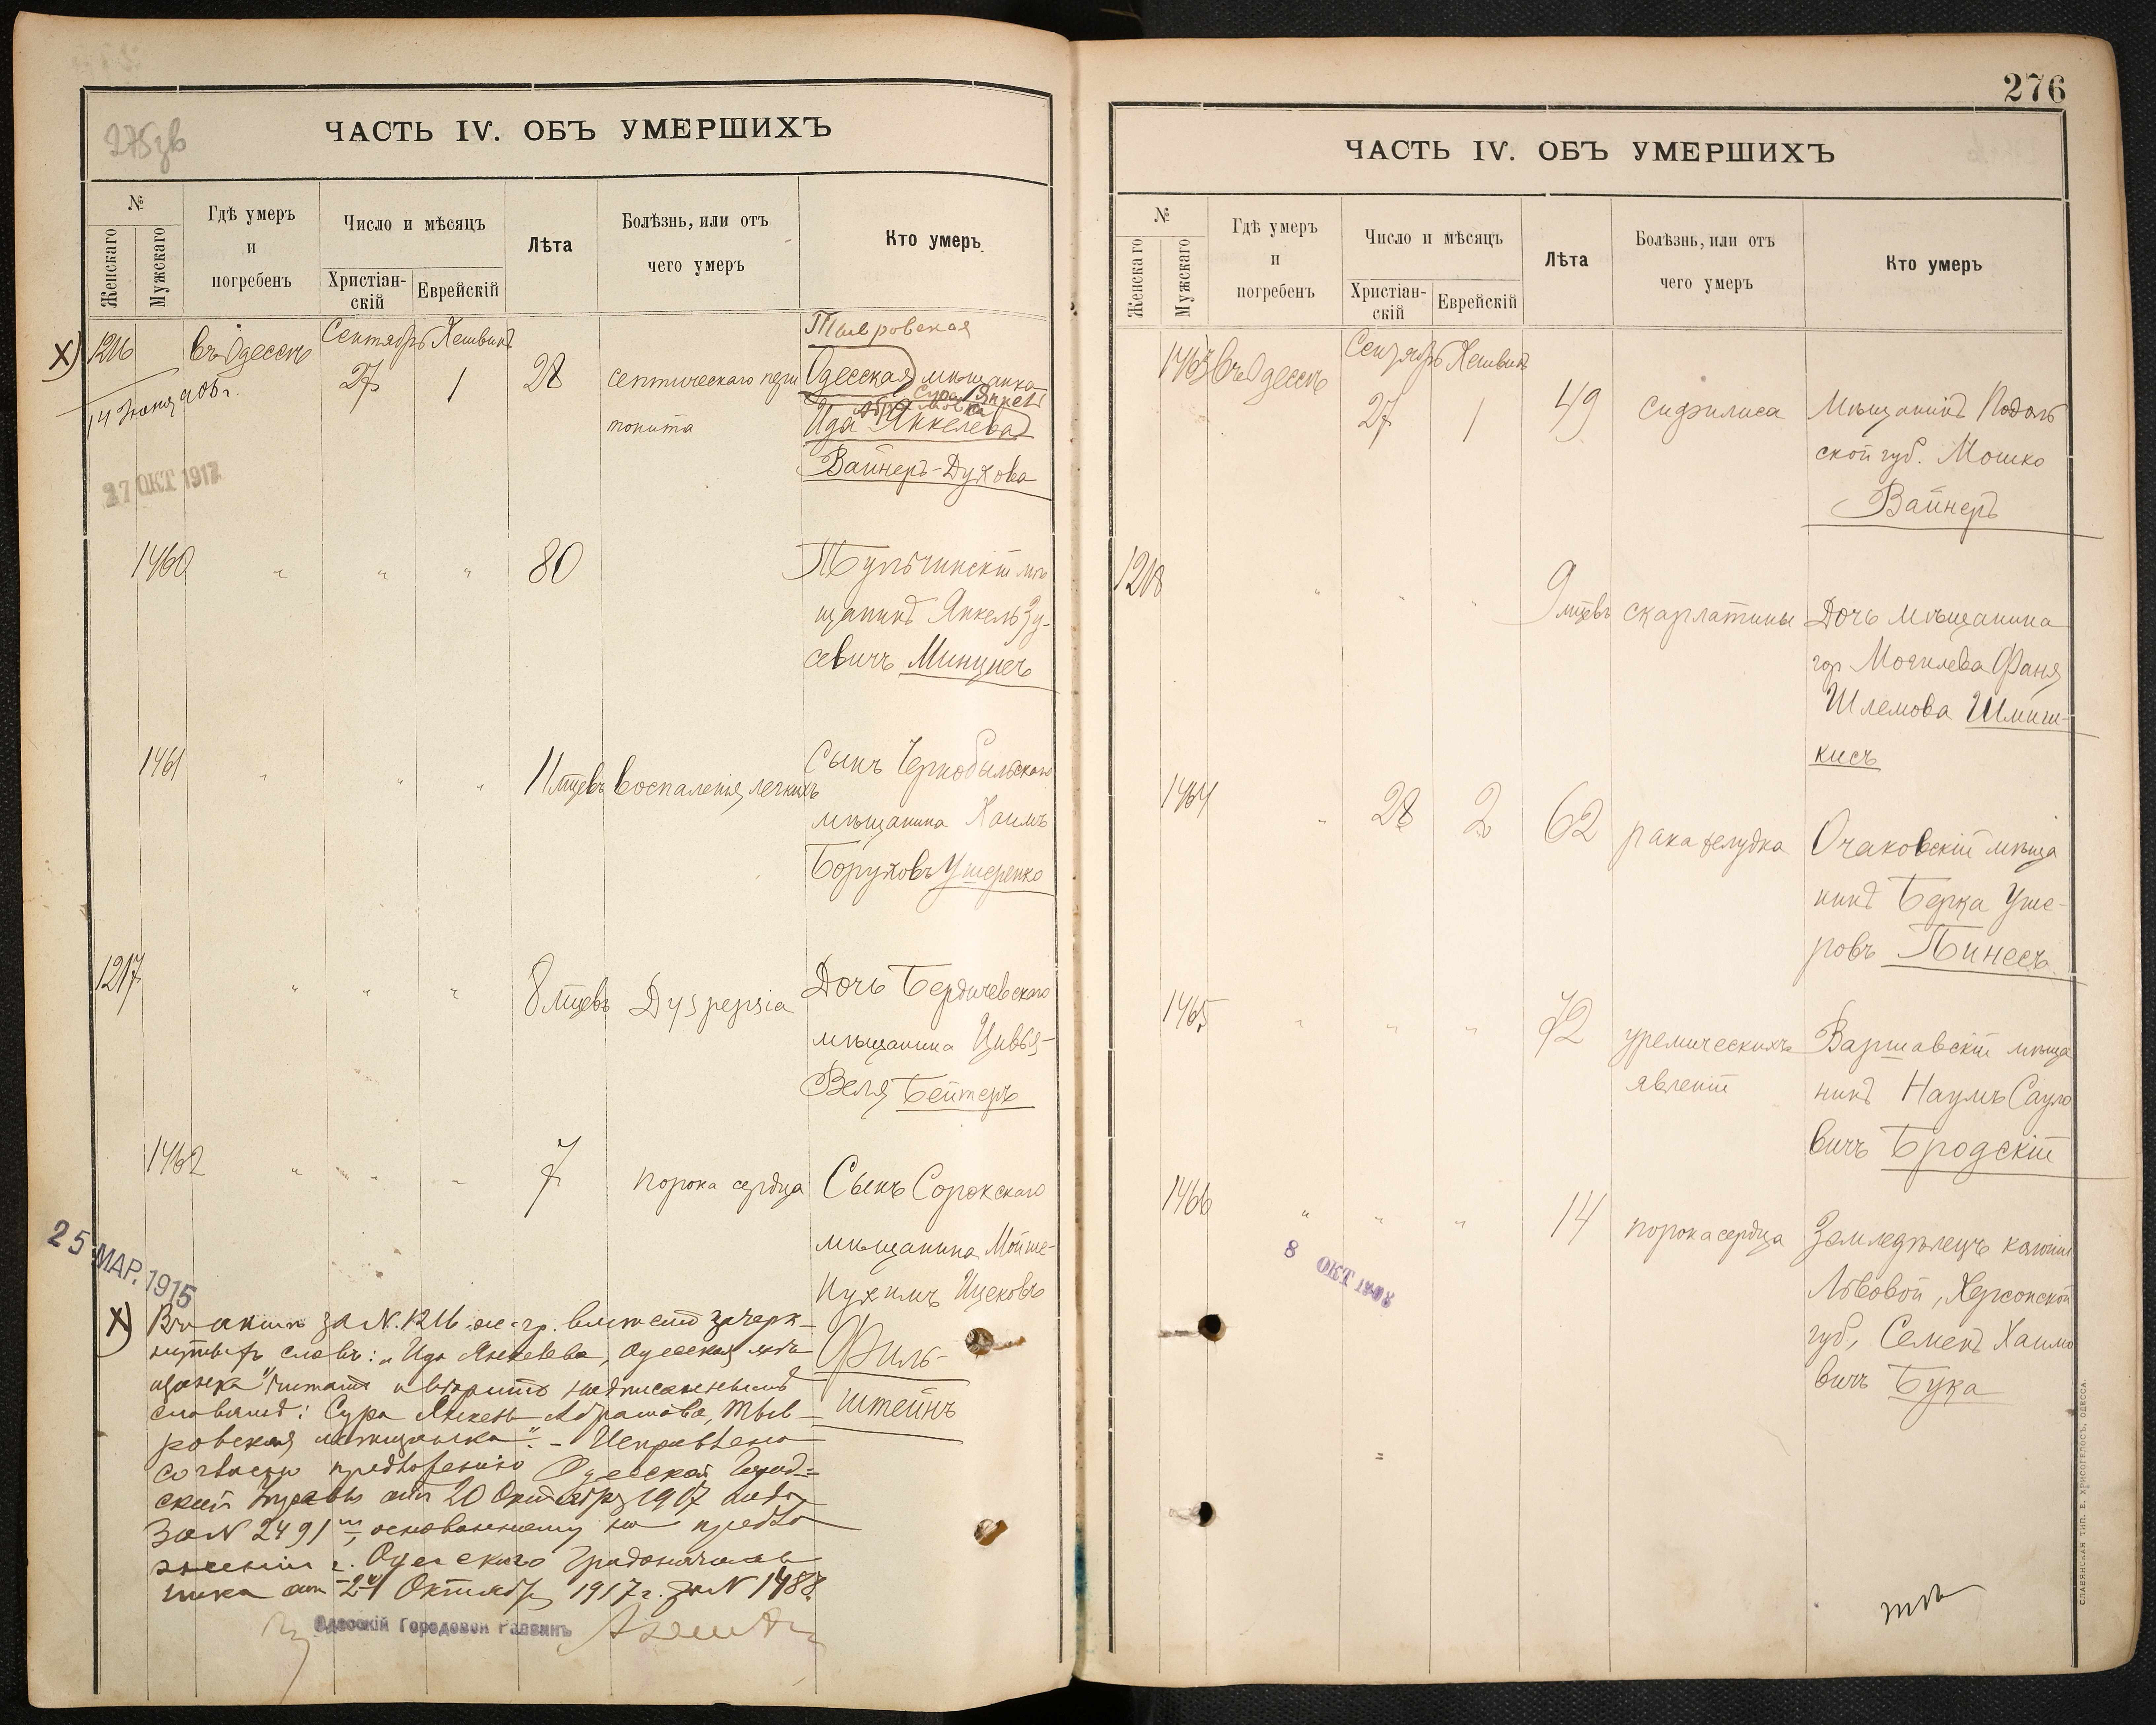 275зв
ЧАСТЬ IV. ОБЪ УМЕРШИХЪ
№
Женскаго
Мужскаго
Гдѣ умеръ
и
погребенъ
Число и мѣсяцъ
Христіан-
скій
Еврейскій
Лѣта
Болѣзнь, или отъ
чего умеръ
Кто умеръ
Х) 1216
въ Одессѣ
Сентябрь Хешвинъ
27
1
28
септическаго пери
тонита
Тывровская
Одесская мѣщанка
Сура Янкель
Абрамовна
Ида Янкелева
Вайнеръ-Духова
27 ОКТ 1917
1460
" " "
80
Тульчинскій мѣ
щанинъ Янкель Зу-
севичъ
1461
" " "
11 мцевъ
воспаленія легкихъ
Сынъ Чернобыльскаго
мѣщанина Хаимъ
Боруховъ Ушеренко
1217
" " "
8 мцевъ
Dyspepsia
Дочь Бердичевскаго
мѣщанина Цивья-
Веля Бейтеръ
1462
" " "
7
порока сердца
Сынъ Сорокскаго
мѣщанина Мойше-
Нухимъ Ицековъ
Филь-
штейнъ
25 МАР. 1915
Х) Въ актѣ за N. 1216 жен. гр. вмѣсто зачерк-
нутыхъ словъ: "Ида Янкелева, Одесская мѣ-
щанка" читать и вѣрить надписаннымъ
словамъ: Сура Янкель Абрамова, Тыв-
ровская мѣщанка". - Исправлено
согласно предложенію Одесской Город-
ской Управы отъ 20 Октября 1917 года
за N 2491 основанному на предло
женіи г. Одесскаго Градоначаль
ника отъ 2 Октября 1917 г. за N 1488
Одесскій Городовой Раввинъ
276
ЧАСТЬ IV. ОБЪ УМЕРШИХЪ
№
Женскаго
Мужскаго
Гдѣ умеръ
и
погребенъ
Число и мѣсяцъ
Христіан-
скій
Еврейскій
Лѣта
Болѣзнь, или отъ
чего умеръ
Кто умеръ
1463
въ Одессѣ
Сентябрь Хешвинъ
27
1
49
сифилиса
Мѣщанинъ Подоль
ской губ. Мошко
Вайнеръ
1218
" " "
9 мцевъ
скарлатины
Дочь мѣщанина
гор Могилева Фаня
Шлемова Шмиш-
кисъ
1464
"
28
2
62
рака желудка
Очаковскій мѣща
нинъ Берка Уше-
ровъ Пинесъ
1465
" " "
72
уремическихъ
явленій
Варшавскій мѣща
нинъ Наумъ Сауло
вичъ Бродскій
1466
" " "
14
порока сердца
Земледѣлецъ колоніи
Львовой, Херсонской
губ, Семенъ Хаимо
вичъ Бука
8 ОКТ 1908
СЛАВЯНСКАЯ ТИП. Е. ХРИСОГЕЛОСЪ, ОДЕССА.